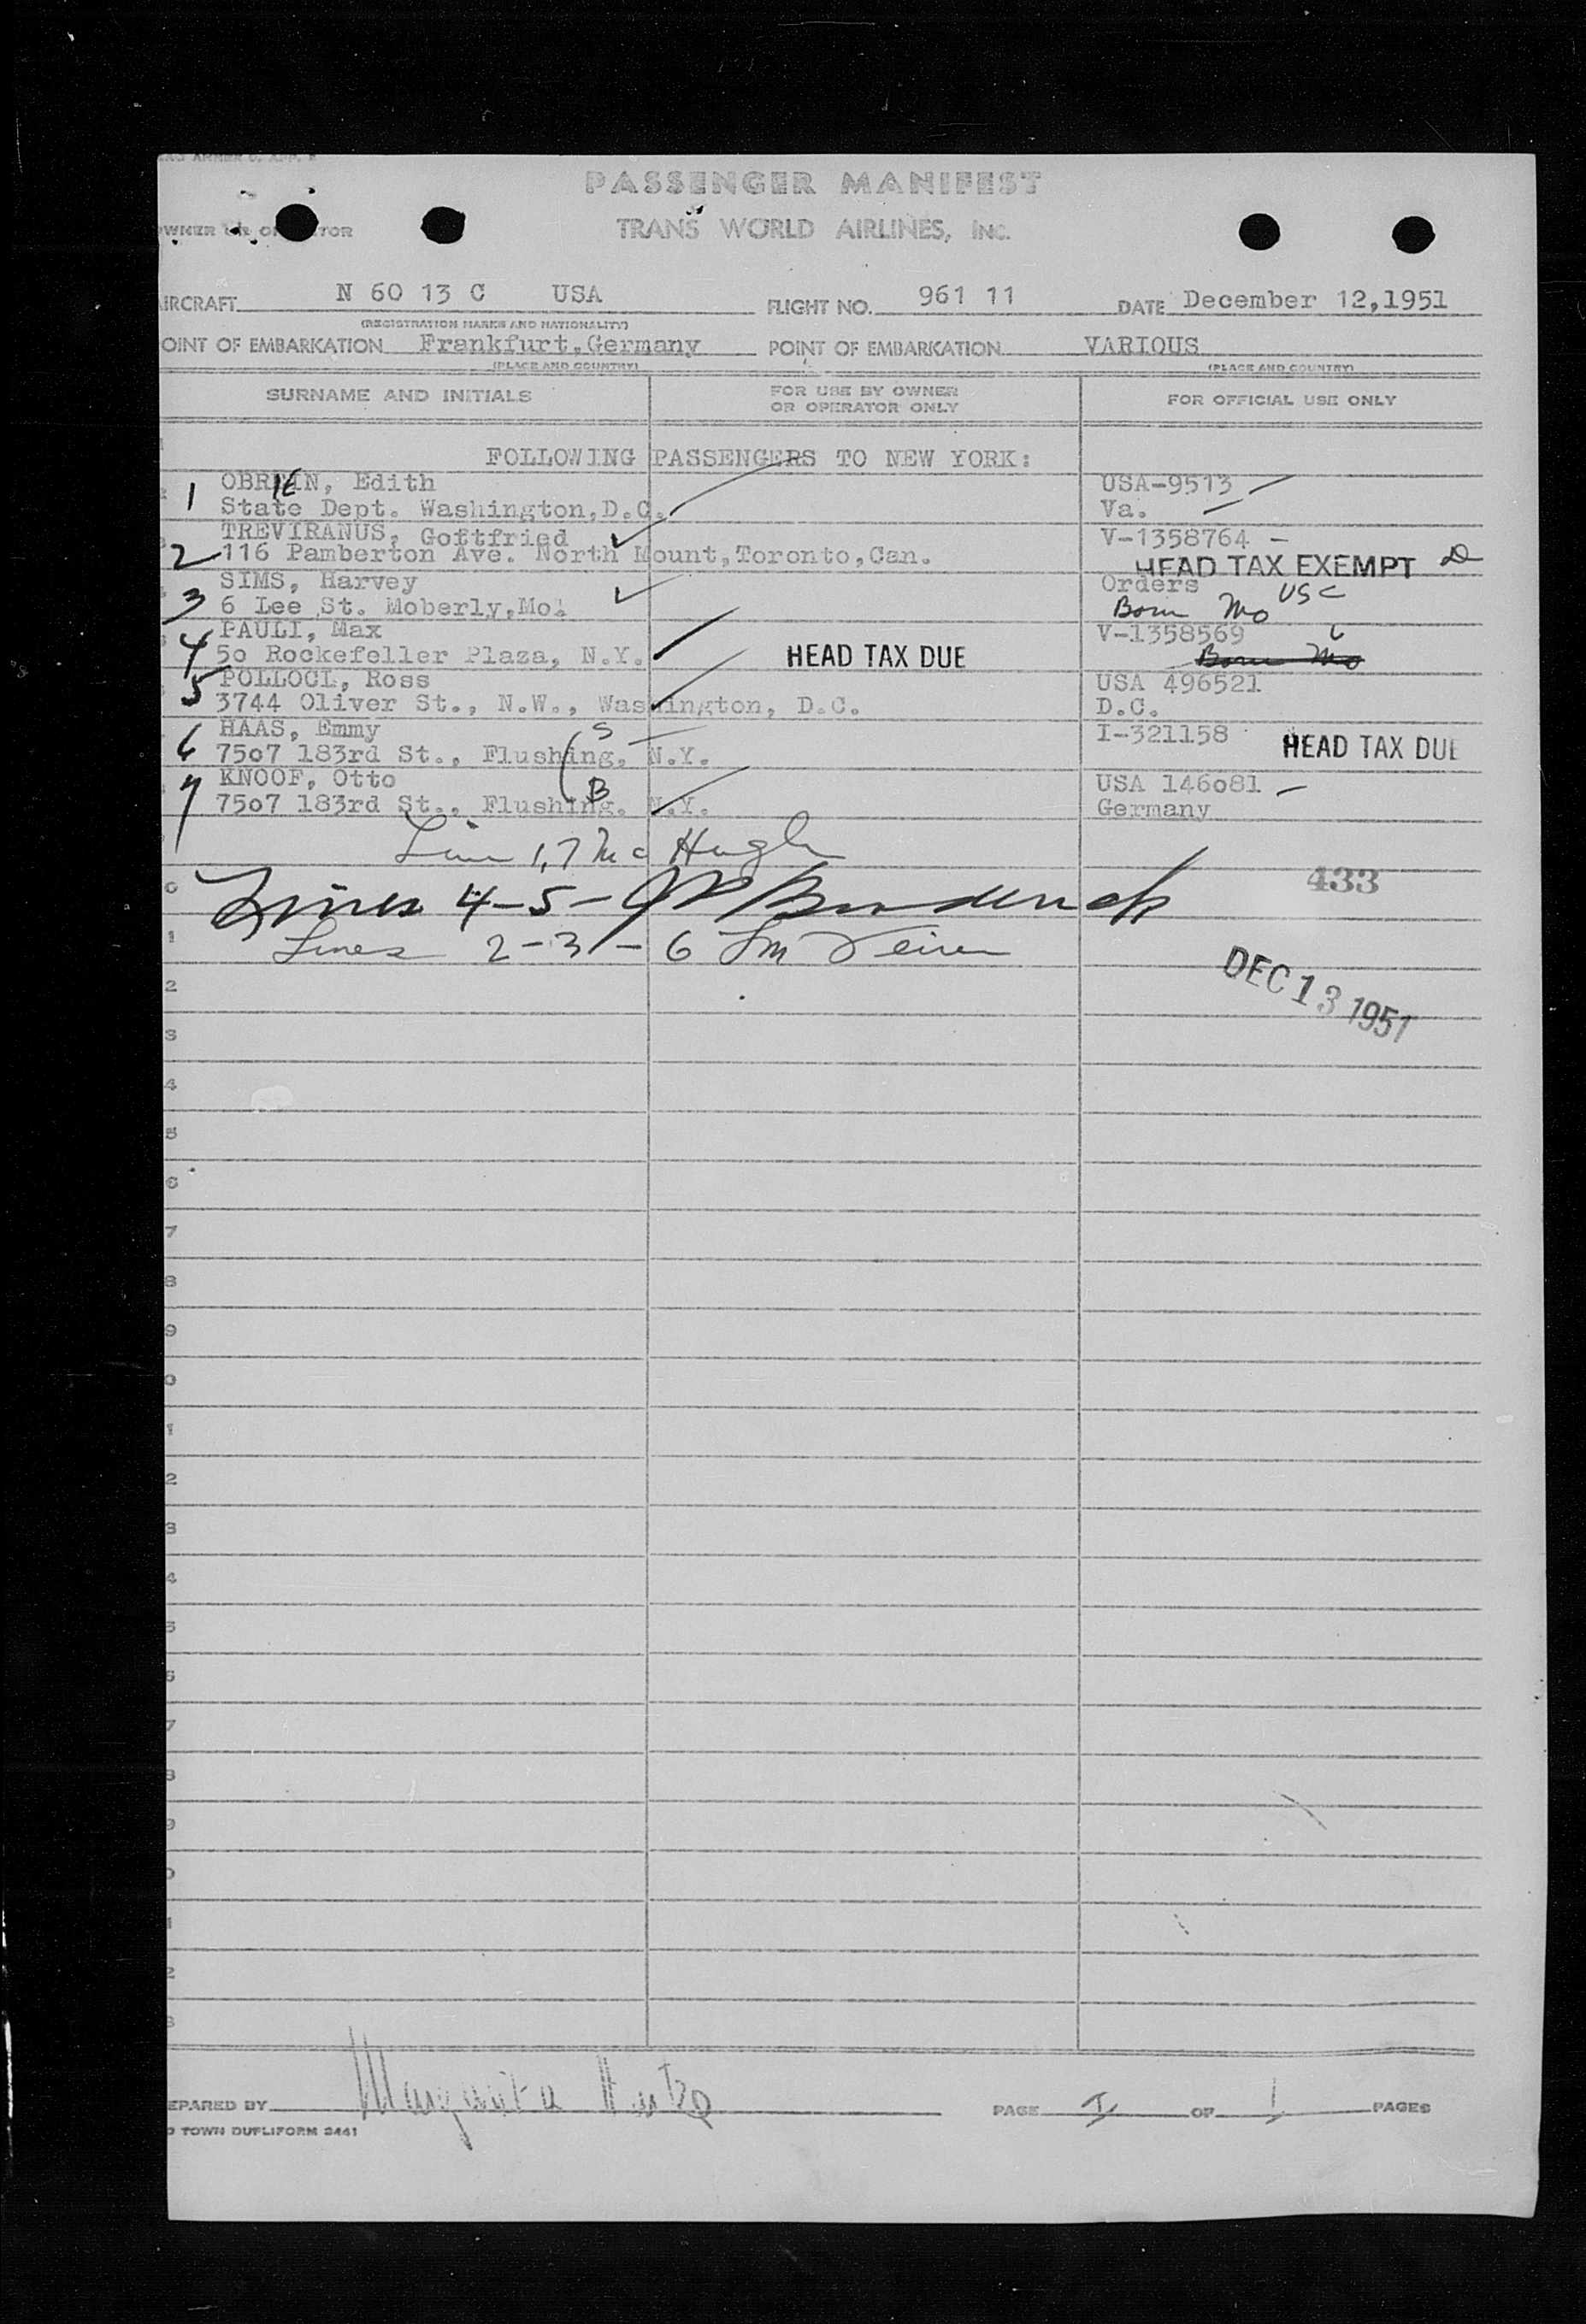 PASSENGER MANIFEST
TRANS WORLD AIRLINES, INC.
AIRCRAFT N 60 13 C USA FLIGHT NO. 961 11 DATE December 12,1951
(REGISTRATION MARKS AND NATIONALITY)
OINT OF EMBARKATION Frankfurt,Germany POINT OF EMBARKATION VARIOUS
(PLACE AND COUNTRY) (PLACE AND COUNTRY)
SURNAME AND INITIALS FOR USE BY OWNER OR OPERATOR ONLY FOR OFFICIAL USE ONLY
FOLLOWING PASSENGERS TO NEW YORK:
1 OBRIEN, Edith USA-9513
State Dept. Washington,D.C. Va.
2 TREVIRANUS, Gottfried V-1358764
116 Pamberton Ave. North Mount,Toronto,Can. HEAD TAX EXEMPT
3 SIMS, Harvey Orders USC
6 Lee St. Moberly,Mo. Born Mo
4 PAULI, Max V-1358569
50 Rockefeller Plaza, N.Y. HEAD TAX DUE Born Mo
5 POLLOCL, Ross USA 496521
3744 Oliver St., N.W., Washington, D.C. D.C.
6 HAAS, Emmy S I-321158
7507 183rd St., Flushing, N.Y. HEAD TAX DUE
7 KNOOF, Otto B USA 146081
7507 183rd St., Flushing, N.Y. Germany
Line 1,7 Mc Hugh
Lines 4-5- Broderick 433
Lines 2-3-6
DEC 13 1951
2
3
4
5
6
7
8
9
0
1
2
3
4
5
6
7
8
9
0
1
2
3
EPARED BY Margarita PAGE I OF 1 PAGES
TOWN DUPLIFORM 3441